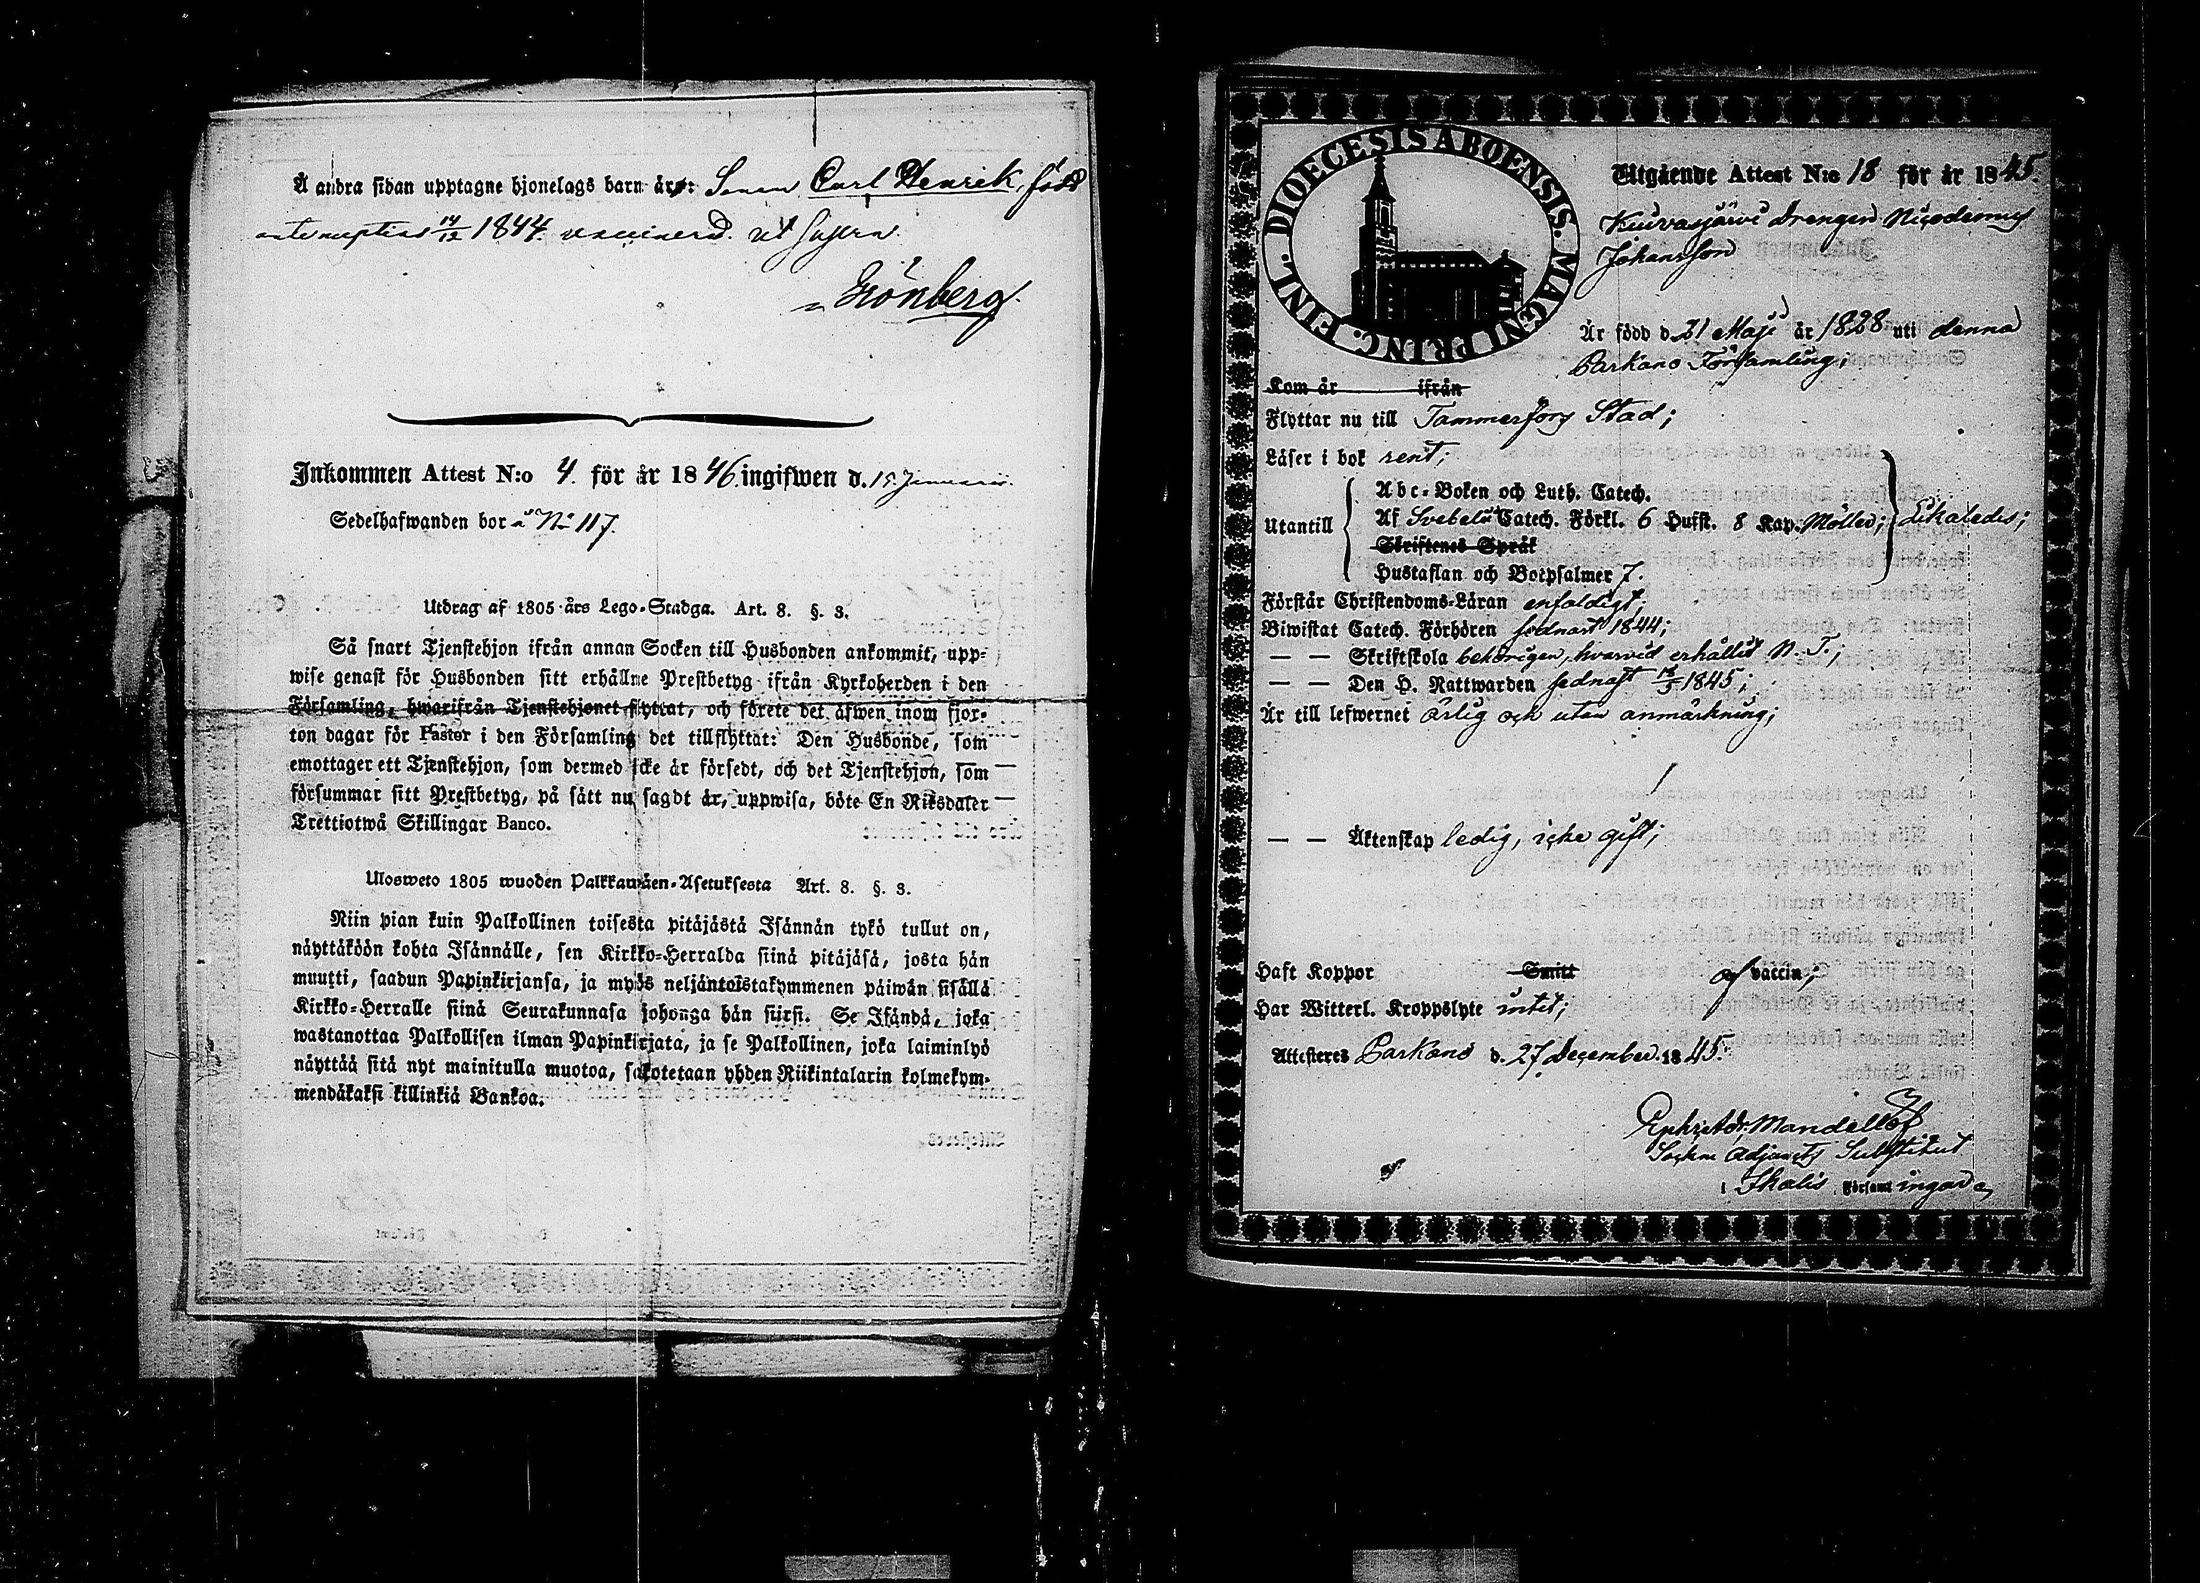 Å andra sidan upptagne hjonelags barn äro: Sonen Carl Henrik, född
ante nuptias 14/12 1844. vaccinerad. ut supra.
Grönberg.
Inkommen Attest N:o 4. för år 1846. ingifwen d. 15 Januarii.
Sedelhafwanden bor å No 117.
Utdrag af 1805 års Lego-Stadga. Art. 8. §. 3.
Så snart Tjenstehjon ifrån annan Socken till Husbonden ankommit, upp-
wise genast för Husbonden sitt erhållne Prestbetyg ifrån Kyrkoherden i den
Församling, hwarifrån Tjenstehjonet flyttat, och förete det äfwen inom fjor-
ton dagar för Pastor i den Församling det tillflyttat: Den Husbonde, som
emottager ett Tjenstehjon, som dermed icke är försedt, och det Tjenstehjon, som
försummar sitt Prestbetyg, på sätt nu sagdt är, uppwisa, böte En Riksdaler
Trettiotwå Skillingar Banco.
Ulosweto 1805 wuoden Palkkawäen-Asetuksesta Art. 8. §. 3.
Niin pian kuin Palkollinen toisesta pitäjästä Isännän tykö tullut on,
näyttäköön kohta Isännälle, sen Kirkko-Herralda siinä pitäjäsä, josta hän
muutti, saadun Papinkirjansa, ja myös neljäntoistakymmenen päiwän sisällä
Kirkko-Herralle siinä Seurakunnasa johonga hän siirsi. Se Isändä, joka
wastanottaa Palkollisen ilman Papinkirjata, ja se Palkollinen, joka laiminlyö
näyttää sitä nyt mainitulla muotoa, sakotetaan yhden Riikintalarin kolmekym-
mendäkaksi killinkiä Bankoa.
DIOECESIS ABOENSIS. MAGNI PRINC. FINL.
Utgående Attest N:o 18 för år 1845.
Kuivasjärvi drengen Nicodemus
Johansson
Är född d. 21 Maji år 1828 uti denna
Parkano Församling;
Kom år ifrån
Flyttar nu till Tammerfors Stad;
Läser i bok rent;
Utantill
Abc-Boken och Luth. Catech.
Af Svebelii Catech. Förkl. 6 Hufst. 8 Kap. Möller;
Skriftenes Språk
Hustaflan och Botpsalmer 7.
Likaledes;
Förstår Christendoms-Läran enfaldigt;
Biwistat Catech. Förhören sednast 1844;
— — Skriftskola behörigen, hvarvid erhållit N. T.;
— — Den H. Nattwarden sednast 12/5 1845;
Är till lefwernet ärlig och utan anmärkning;
— — Äktenskap ledig, icke gift;
Haft Koppor Smitt af vaccin;
Har Witterl. Kroppslyte intet;
Attesteres Parkano d. 27 december. 1845.
Mandellöf
Sockne Adjuncts Substitut
i Ikalis Församlingarda